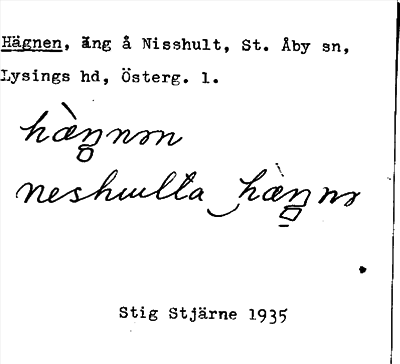 Hägnen, äng å Nisshult, St. Åby sn,
Lysings hd, Österg. l.
hàŋnən
neshulta hàŋnə
Stig Stjärne 1935